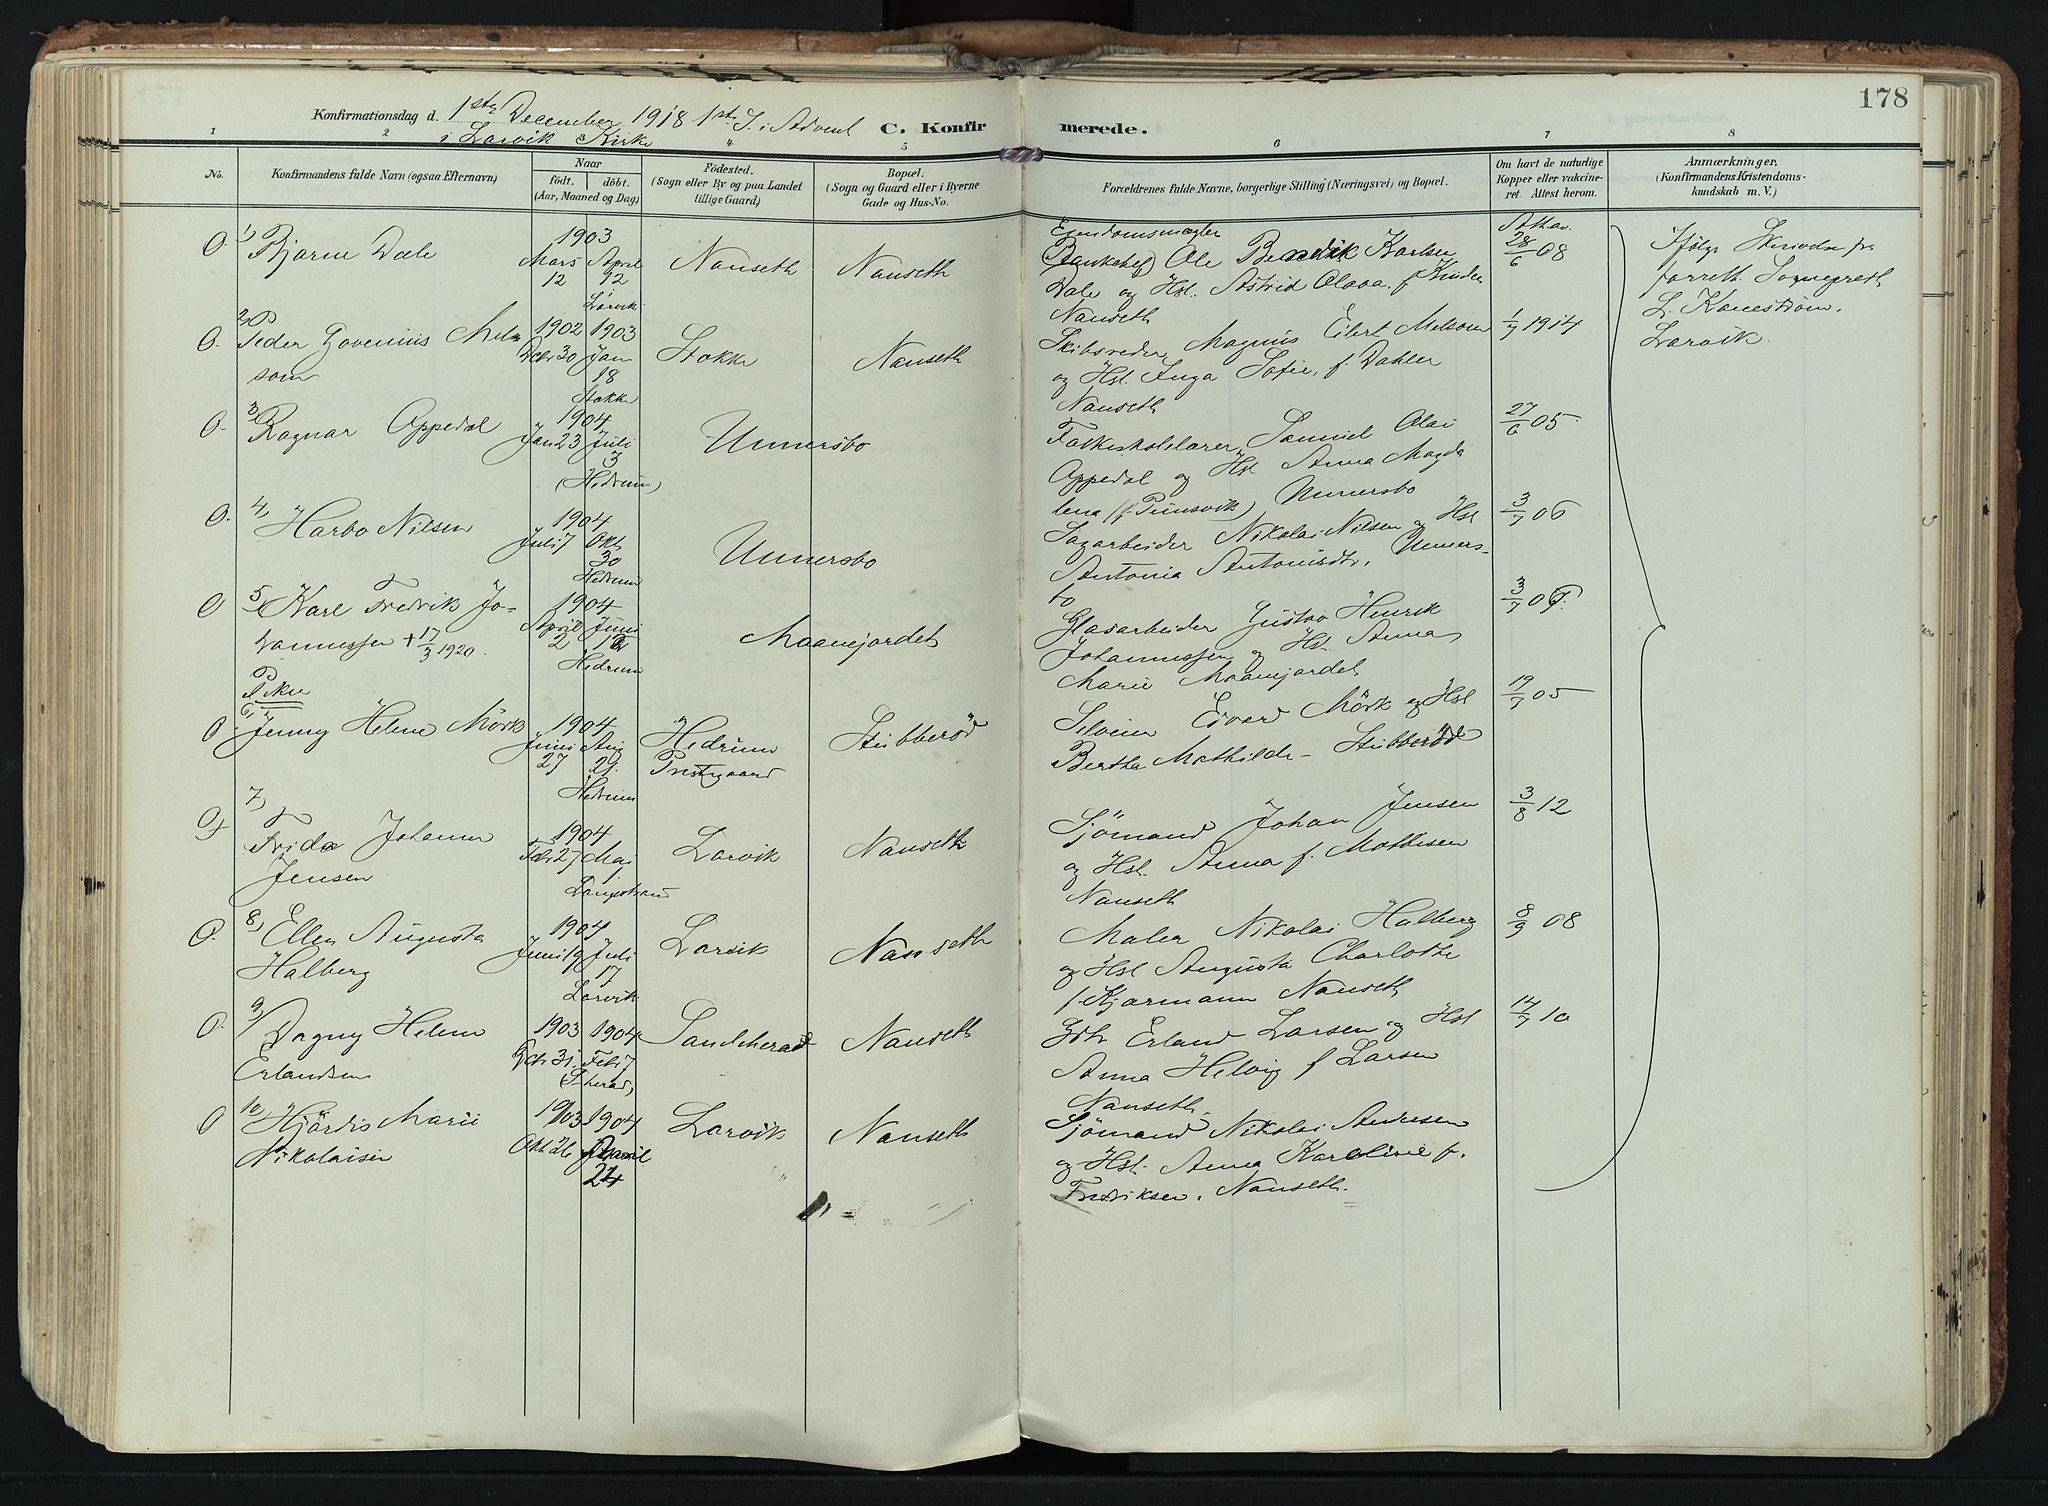 178
Konfirmationsdag d. 1ste December 1918 1ste S. i Advent
i Larvik Kirke
C. Konfirmerede.
1 2 4 5 6 7 8
No.
Konfirmandens fulde Navn (ogsaa Efternavn).
Naar
födt. döbt.
(Aar, Maaned og Dag)
Födested.
(Sogn eller By og paa Landet
tillige Gaard)
Bopæl.
(Sogn og Gaard eller i Byerne
Gade og Hus-No.
Forældrenes fulde Navne, borgerlige Stilling (Næringsvei) og Bopæl.
Om havt de naturlige
Kopper eller vakcine-
ret. Attest herom.
Anmærkninger,
(Konfirmandens Kristendoms-
kundskab m. V.)
O. 1) Bjarne Dale
1903
Mars April
12 12
i
Larvik
Nanseth Nanseth
Eiendomsmægler
(Bankchef) Ole Bendik Karlsen
Dale og Hst. Astrid Olava f.
Nanseth
28/6 08
Ifølge Skrivelse fra
Sogneprest
Larvik.
O. 2) Peder Govenius Melsom
1902 1903
30 Jan
18
Stokke
Stokke Nanseth
Skibsreder Magnus Eilert Melsom
og Hst. Inga Sofie, f. Dahler
Nanseth
1/7 1914
O. 3) Ragnar Appedal
1904
Jan 23 Juli
3
(Hedrum)
Unnersbo
Folkeskolelærer Samuel Olai
Appedal og Hst Anna Magda
lena Unnersbo
27/6 05
O. 4) Harbo Nilsen
1904
Juli 7 Okt
30
Hedrum
Unnersbo
Sagarbeider Nikolai Nilsen og Hst
Antonia Antonisdtr. Unners-
bo
3/7 06
O 5) Karl Fredrik Jo-
hannessen + 17/3 1920.
1904
April Juni
2 12
Hedrum
Maanejordet
Glasarbeider Gustav Henrik
Johannessen og Hst. Anna
Marie Maanejordet
3/7 09.
Piker
O 6) Jenny Helene Mörk
1904
Juni Aug
27 21.
Hedrum
Hedrum
Prestegaard
Stubberöd
Selveier Edvard Mörk og Hst
Bertha Mathilde - Stubberöd
19/7 05
O 7) Frida Johanne
Jensen
1904
Feb 27 Maj
Langestrand
Larvik Nanseth
Sjömand Johan Jensen
og Hst. Anna f. Mathisen
Nanseth
3/8 12
O. 8) Ellen Augusta
Halberg
1904
Juni 19 Juli
17
Larvik
Larvik Nanseth
Maler Nikolai Halberg
og Hst Augusta Charlotte
f. Kjærmann Nanseth
8/9 08
O. 9) Dagny Helene
Erlandsen
1903 1904
31. Feb 7
(S. herad)
Sandeherad Nanseth
Gbr Erland Larsen og Hst
Anna Helvig f Larsen
Nanseth
14/7 10
O 10) Hjördis Marie
Nikolaisen
1903 1904
Okt 26 April
24
Larvik Nanseth
Sjömand Nikolai Andresen
og Hst. Anna Karoline f.
Fredriksen. Nanseth.